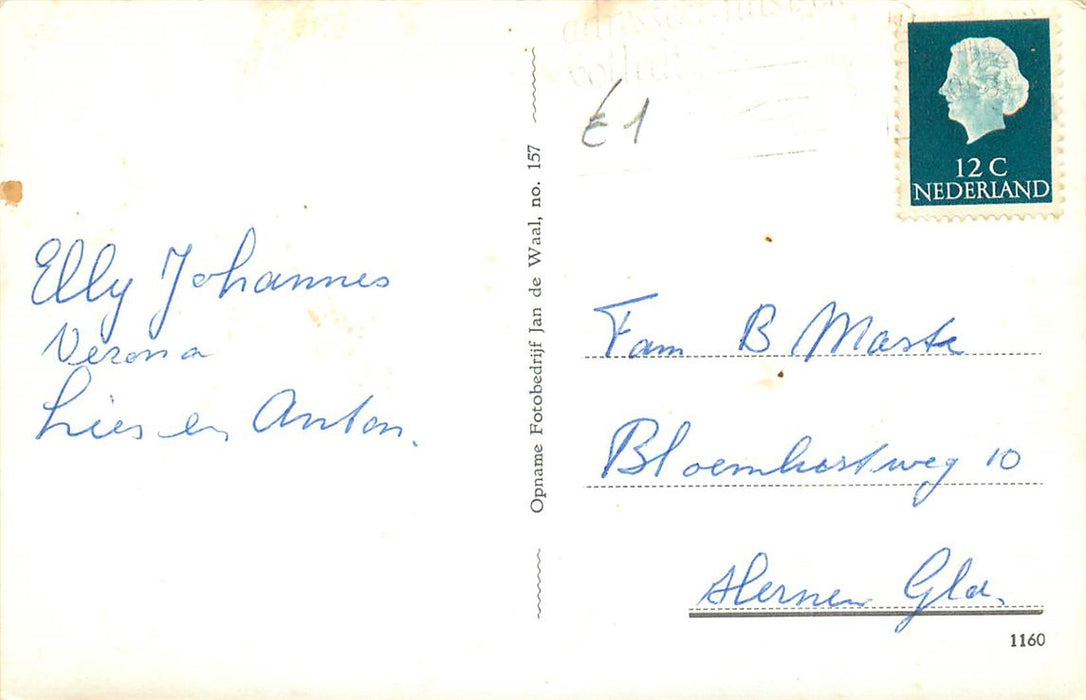 Elly Johannes
Verona
Lies en Anton.
Opname Fotobedrijf Jan de Waal, no. 157
£1
12 C
NEDERLAND
Fam B Maste
Bloemhertweg 10
Hernen Gld.
1160